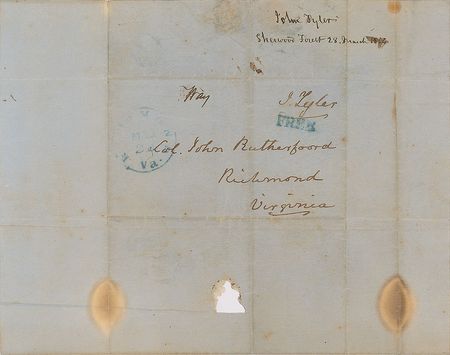 John Tyler
Sherwood Forest 28. March
Way
J. Tyler
FREE
Va.
Col. John Rutherfoord
Richmond
Virginia